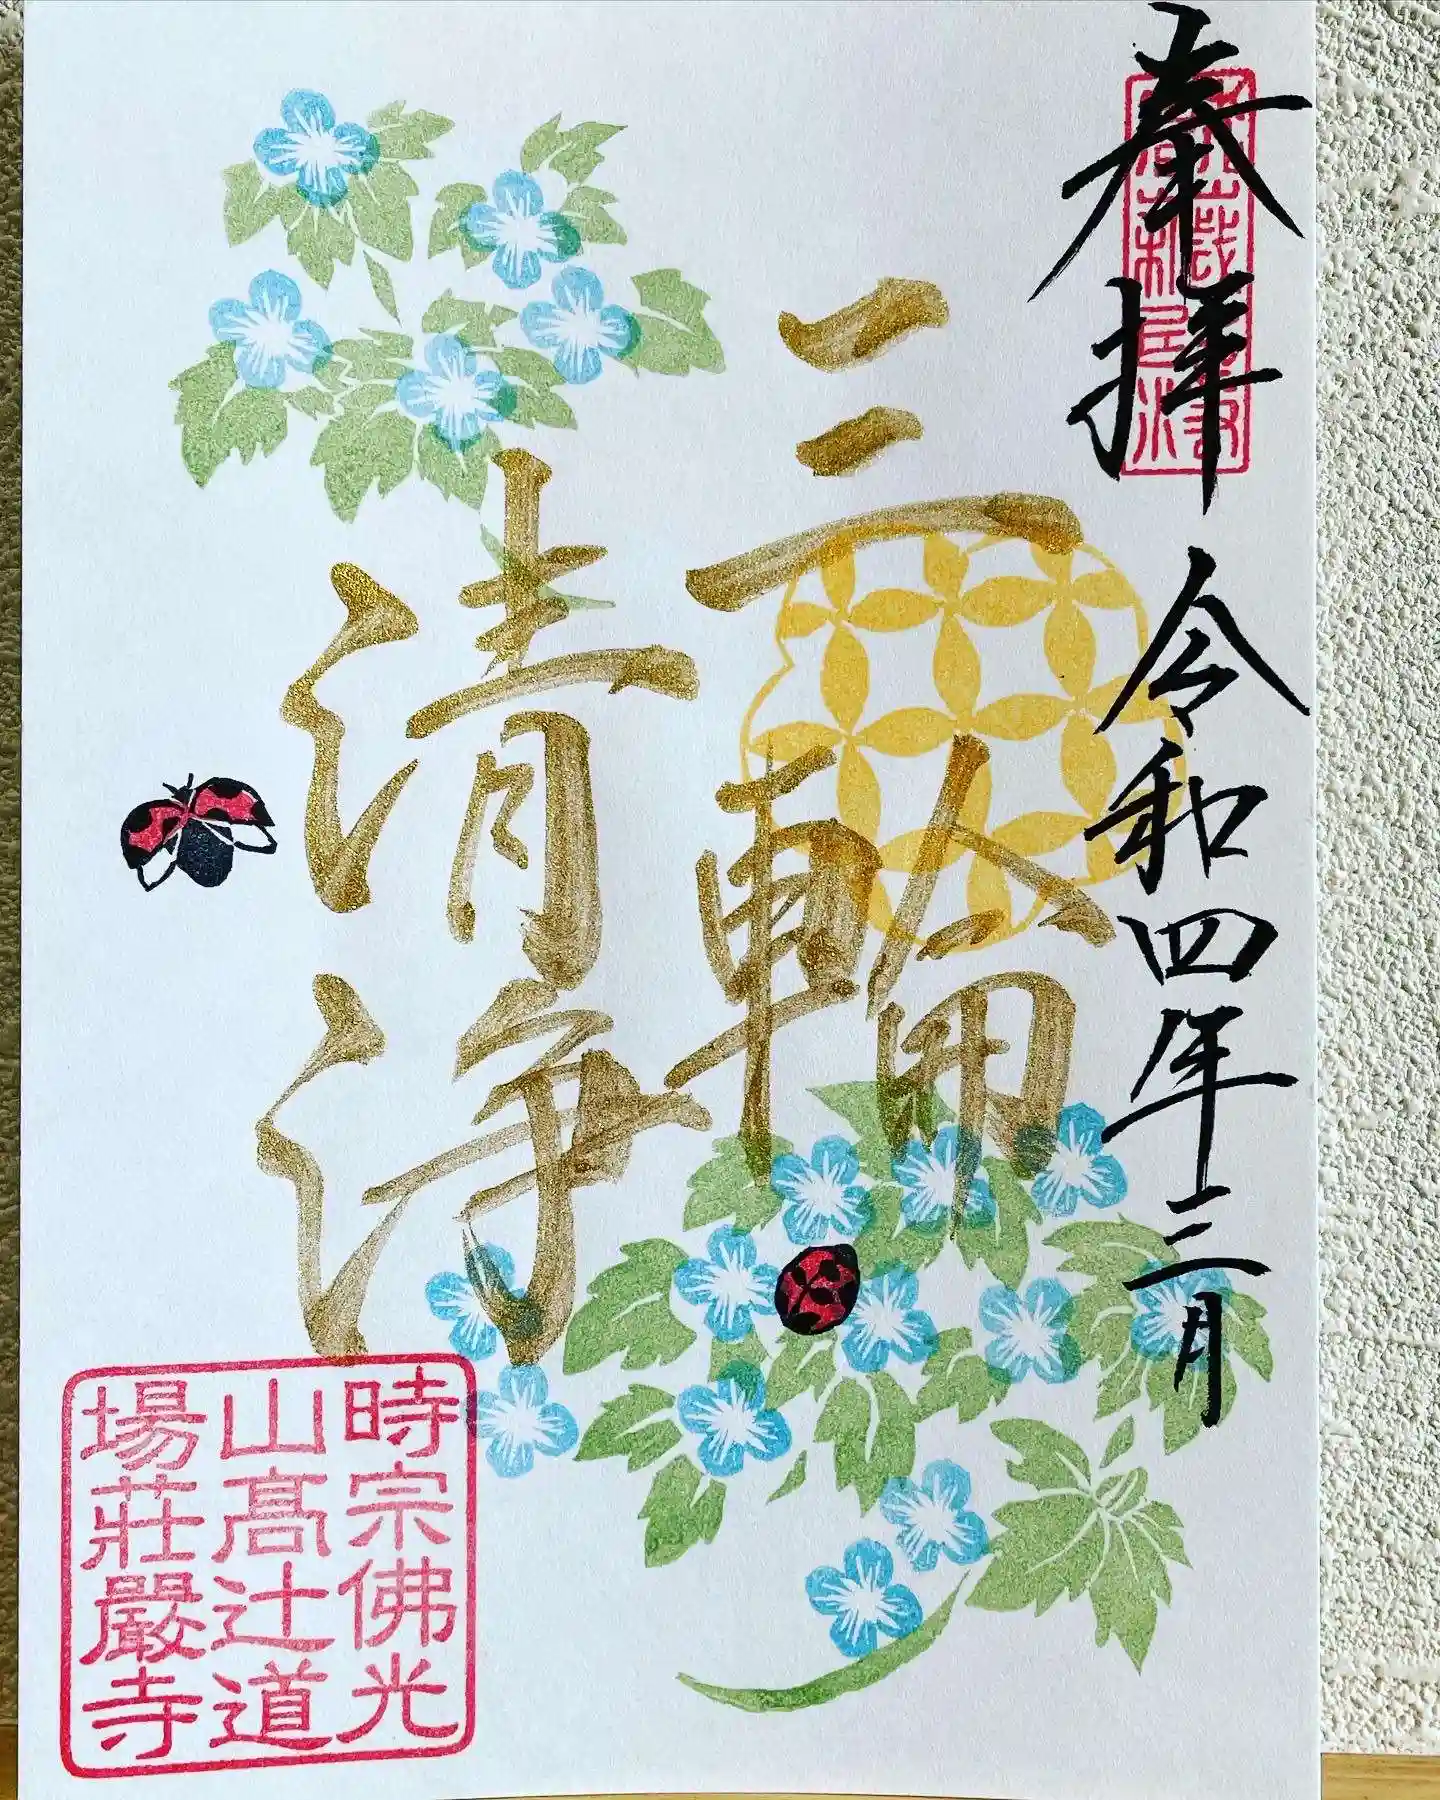 奉拝 令和四年三月
三輪
清浄
時宗佛光
山高辻道
場荘嚴寺